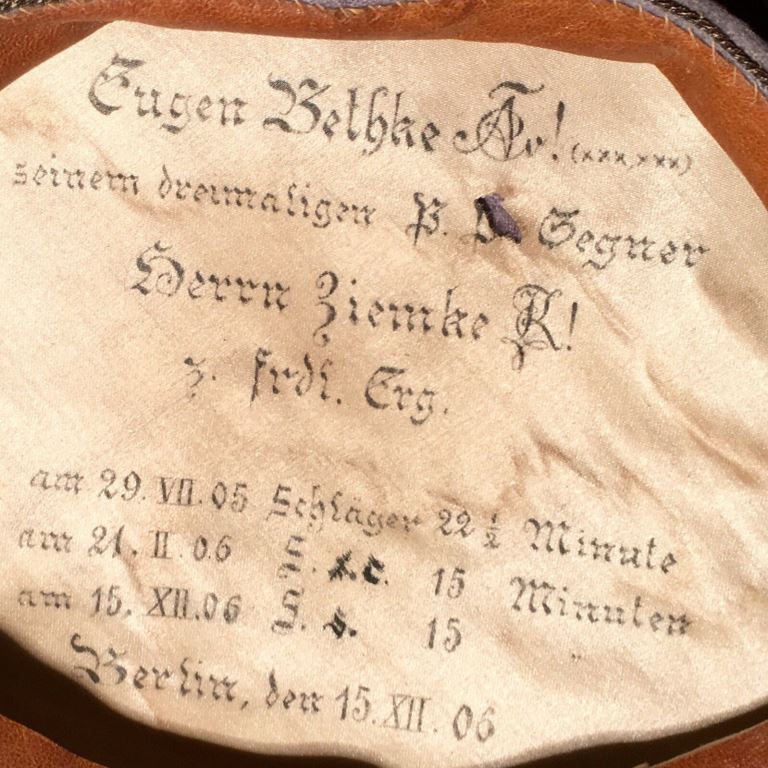 Eugen Bethke (xxx,xxx)
seinem dreimaligen P. Gegner
Herrn Ziemke
z. frdl. Erg.
am 29. VII. 05 Schläger 22 ½ Minute
am 21. II. 06 S. s.c. 15 Minuten
am 15. XII. 06 S. s. 15 "
Berlin, den 15. XII. 06